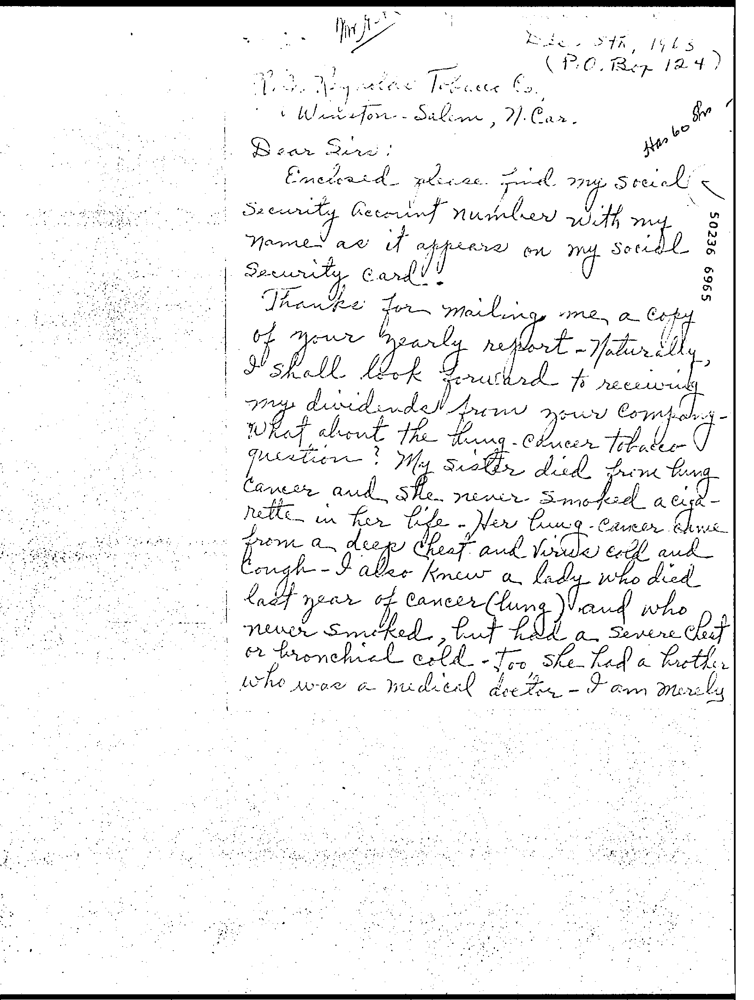 Dec. 8th, 1963
(P.O. Box 124)
R. J. Reynolds Tobacco Co.,
Winston-Salem, N. Car.
Has 60 Shs
Dear Sirs:
Enclosed please find my social
Security Account number with my
name as it appears on my social
Security card.
50236 6965
Thanks for mailing me a copy
of your yearly report - Naturally,
I shall look forward to receiving
my dividends from your Company-
What about the lung-cancer tobacco
question? My sister died from lung
cancer and she never smoked a ciga-
rette in her life - Her lung-cancer came
from a deep chest and virus cold and
cough - I also knew a lady who died
last year of cancer (lung) and who
never smoked, but had a severe chest
or bronchial cold - Too, she had a brother
who was a medical doctor - I am merely